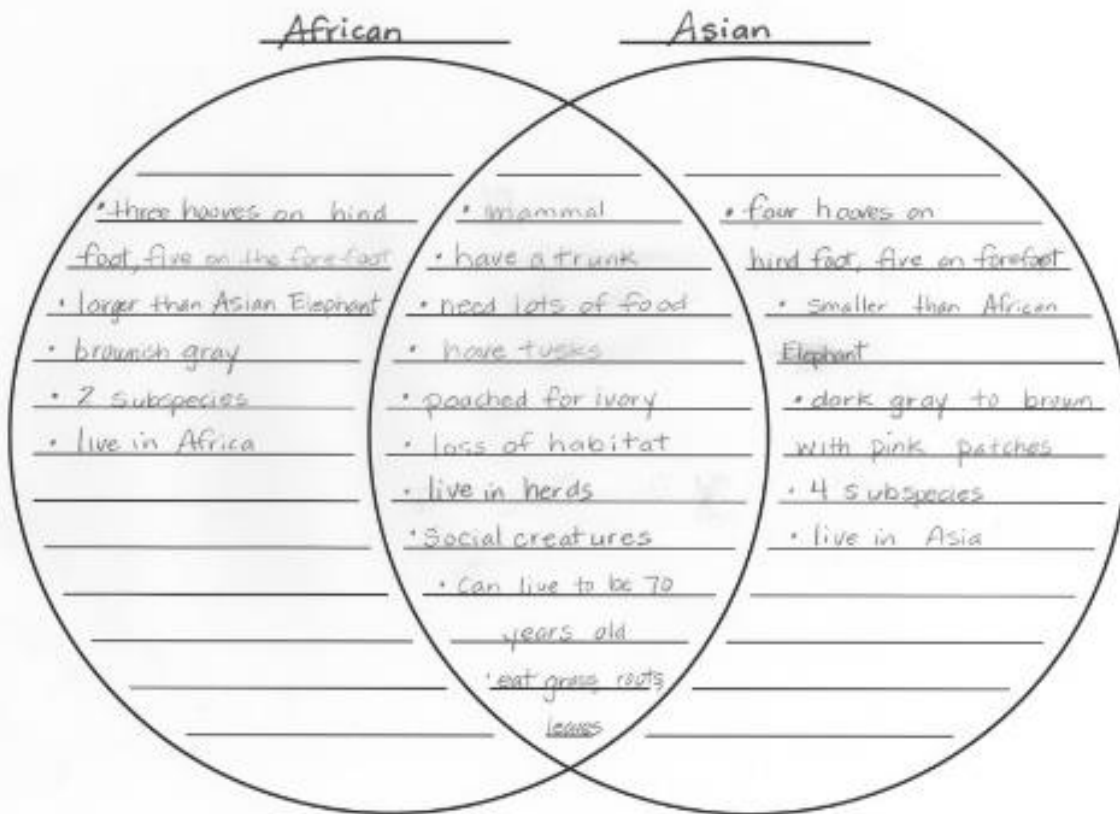 African
Asian
• three hooves on hind
foot, five on the forefoot
• larger than Asian Elephant
• brownish gray
• 2 subspecies
• live in Africa
• mammal
• have a trunk
• need lots of food
• have tusks
• poached for ivory
• loss of habitat
• live in herds
• Social creatures
• Can live to be 70
years old
• eat grass, roots,
leaves
• four hooves on
hind foot, five on forefoot
• smaller than African
Elephant
• dark gray to brown
with pink patches
• 4 subspecies
• live in Asia